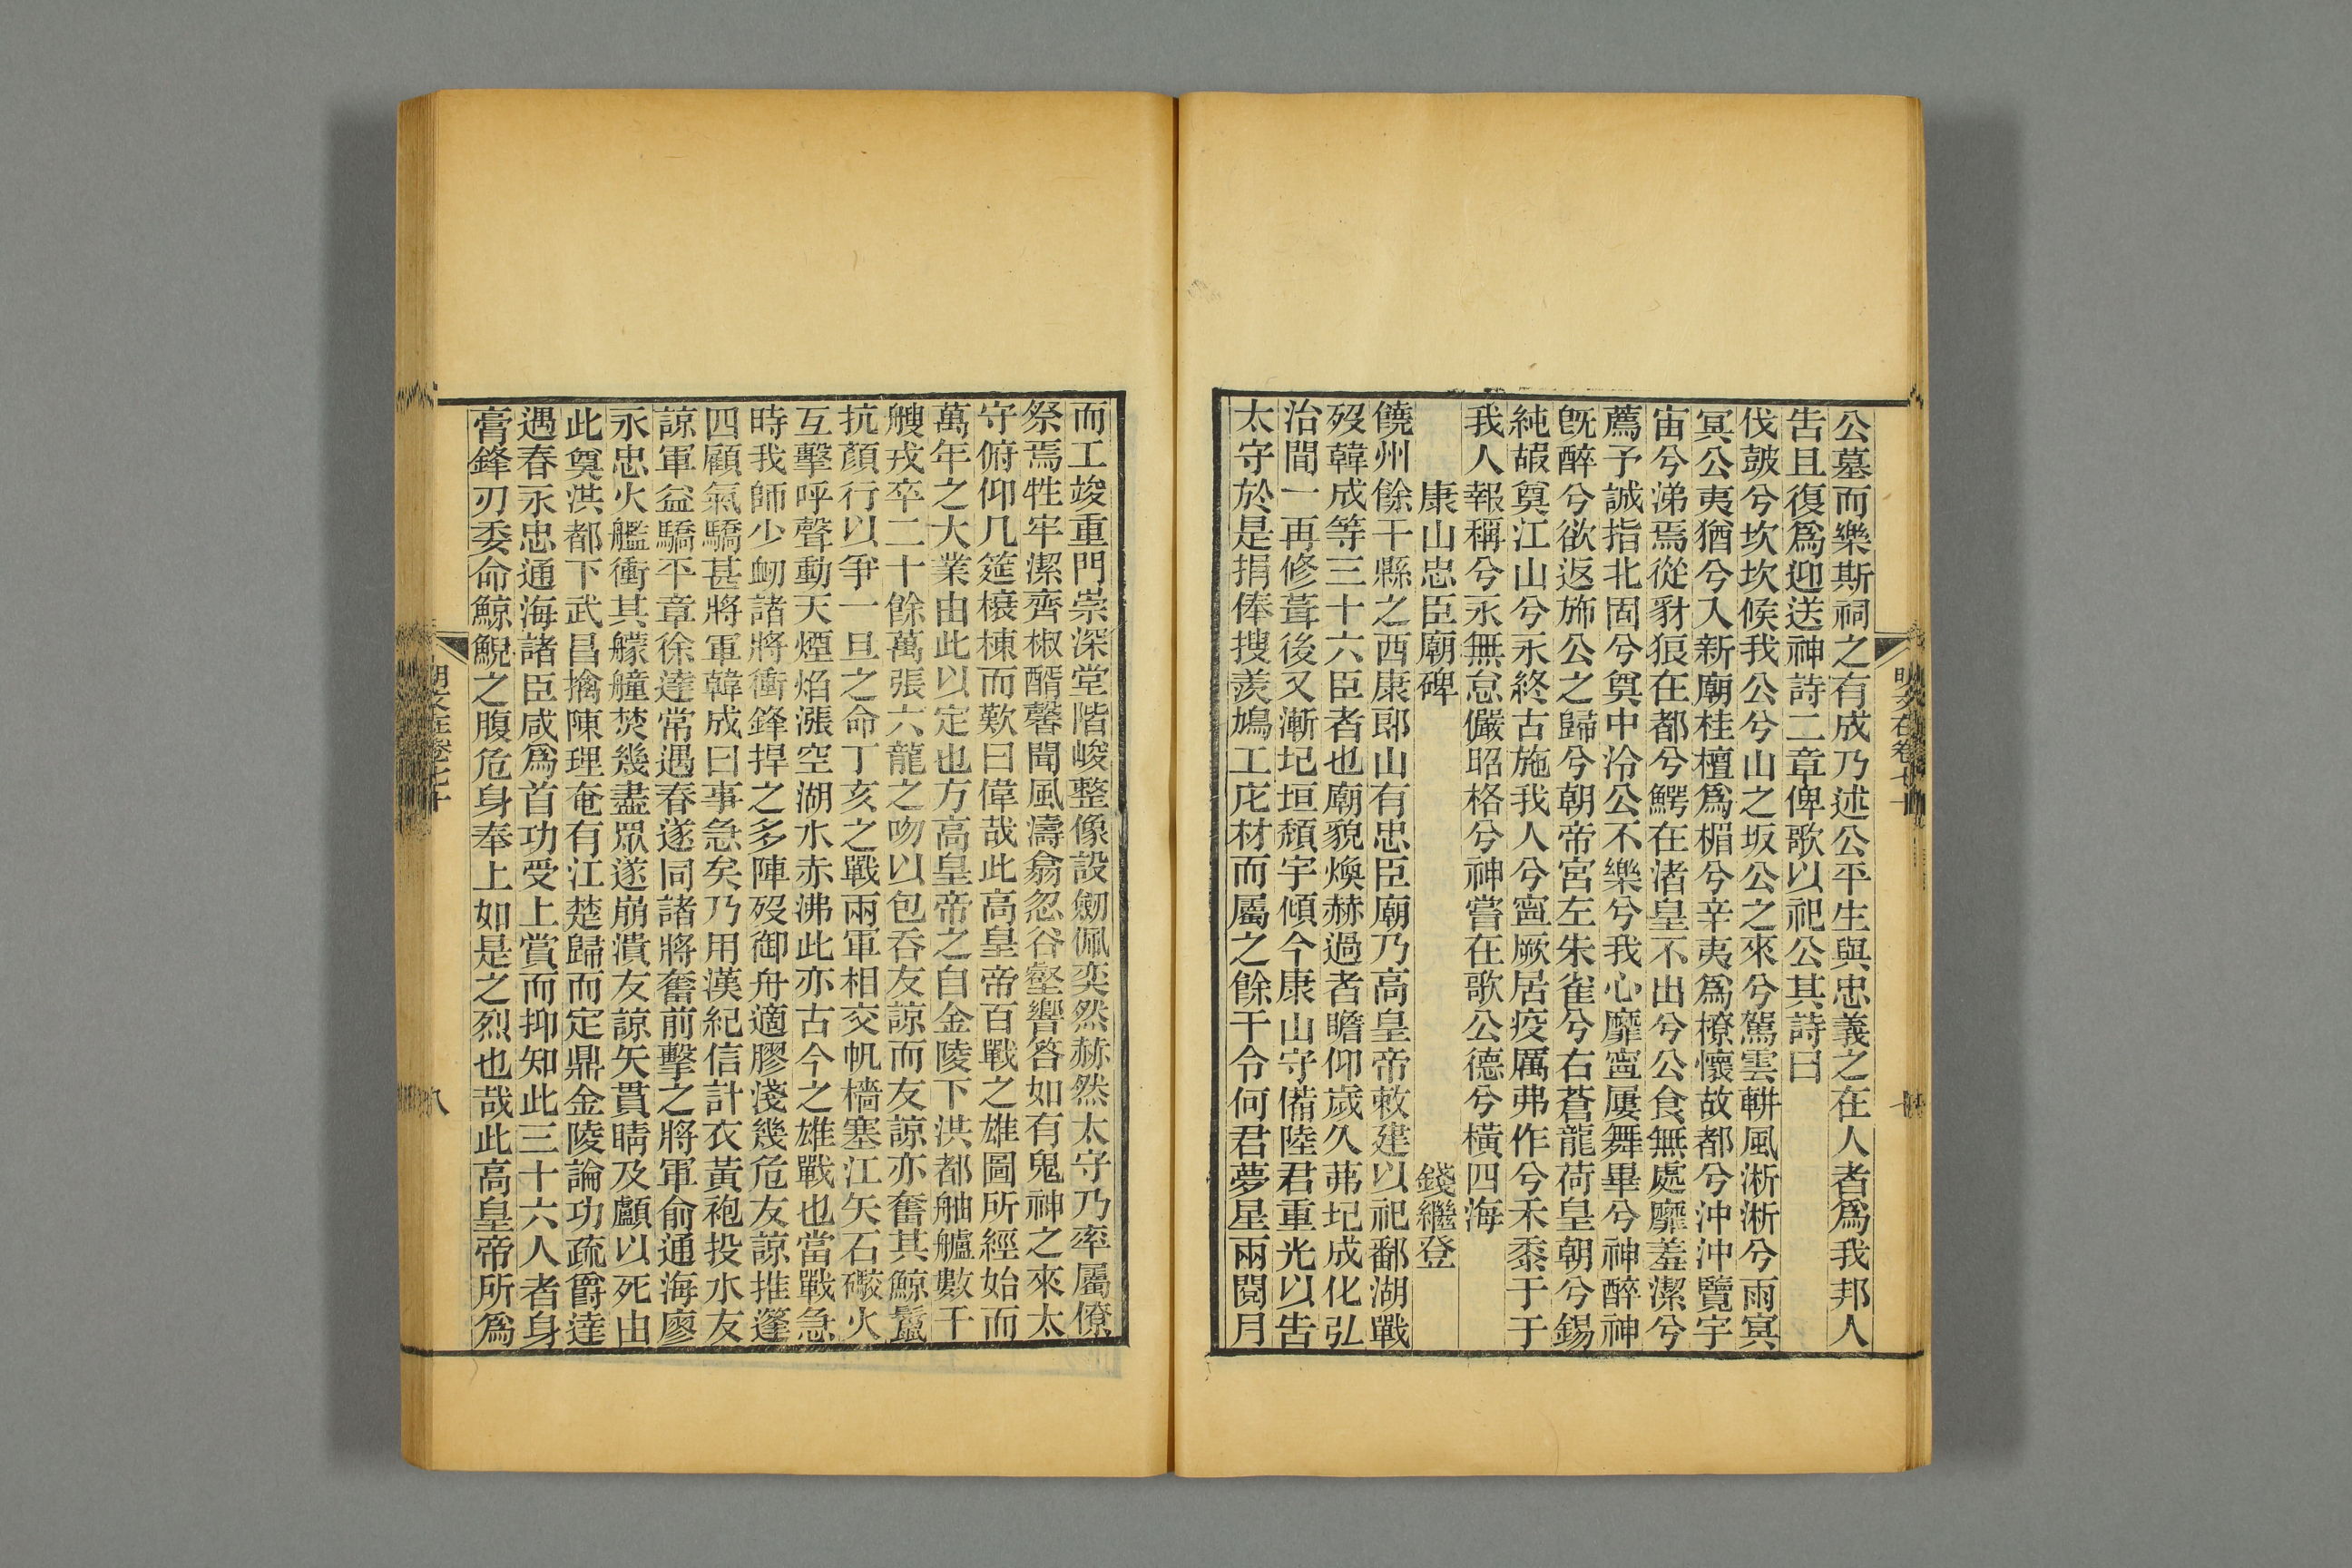 公墓而樂斯祠之有成乃述公平生與忠義之在人者爲我邦人
告且復爲迎送神詩二章俾歌以祀公其詩曰
伐鼓兮坎坎候我公兮山之坂公之來兮駕雲軿風淅淅兮雨冥
冥公夷猶兮入新廟桂檀爲楣兮辛夷爲橑懷故都兮沖沖覽宇
宙兮涕焉從豺狼在都兮鰐在渚皇不出兮公食無處靡羞潔兮
薦予誠指北固兮奠中泠公不樂兮我心靡寧屢舞畢兮神醉神
旣醉兮欲返斾公之歸兮朝帝宮左朱雀兮右蒼龍荷皇朝兮錫
純嘏奠江山兮永終古施我人兮寧厥居疫厲弗作兮禾黍于于
我人報稱兮永無怠儼昭格兮神嘗在歌公德兮橫四海
康山忠臣廟碑　錢繼登
饒州餘干縣之西康郎山有忠臣廟乃高皇帝敕建以祀鄱湖戰
歿韓成等三十六臣者也廟貌煥赫過者瞻仰嵗久茀圮成化弘
治間一再修葺後又漸圮垣頹宇傾今康山守備陸君重光以告
太守於是捐俸搜羨鳩工庀材而屬之餘干令何君夢星兩閱月
而工竣重門崇深堂階峻整像設劒佩奕然赫然太守乃率屬僚
祭焉牲牢潔齊椒醑馨聞風濤翕忽谷壑響答如有鬼神之來太
守俯仰几筵榱棟而歎曰偉哉此高皇帝百戰之雄圖所經始而
萬年之大業由此以定也方高皇帝之自金陵下洪都舳艫數千
艘戎卒二十餘萬張六龍之吻以包吞友諒而友諒亦奮其鯨鬣
抗顏行以爭一旦之命丁亥之戰兩軍相交帆檣塞江矢石礮火
互擊呼聲動天煙焰漲空湖水赤沸此亦古今之雄戰也當戰急
時我師少衂諸將衝鋒捍之多陣歿御舟適膠淺幾危友諒推篷
四顧氣驕甚將軍韓成曰事急矣乃用漢紀信計衣黃袍投水友
諒軍益驕平章徐達常遇春遂同諸將奮前擊之將軍俞通海廖
永忠火艦衝其艨艟焚幾盡眾遂崩潰友諒矢貫睛及顱以死由
此奠洪都下武昌擒陳理奄有江楚歸而定鼎金陵論功疏爵達
遇春永忠通海諸臣咸爲首功受上賞而抑知此三十六人者身
膏鋒刃委命鯨鯢之腹危身奉上如是之烈也哉此高皇帝所爲
八